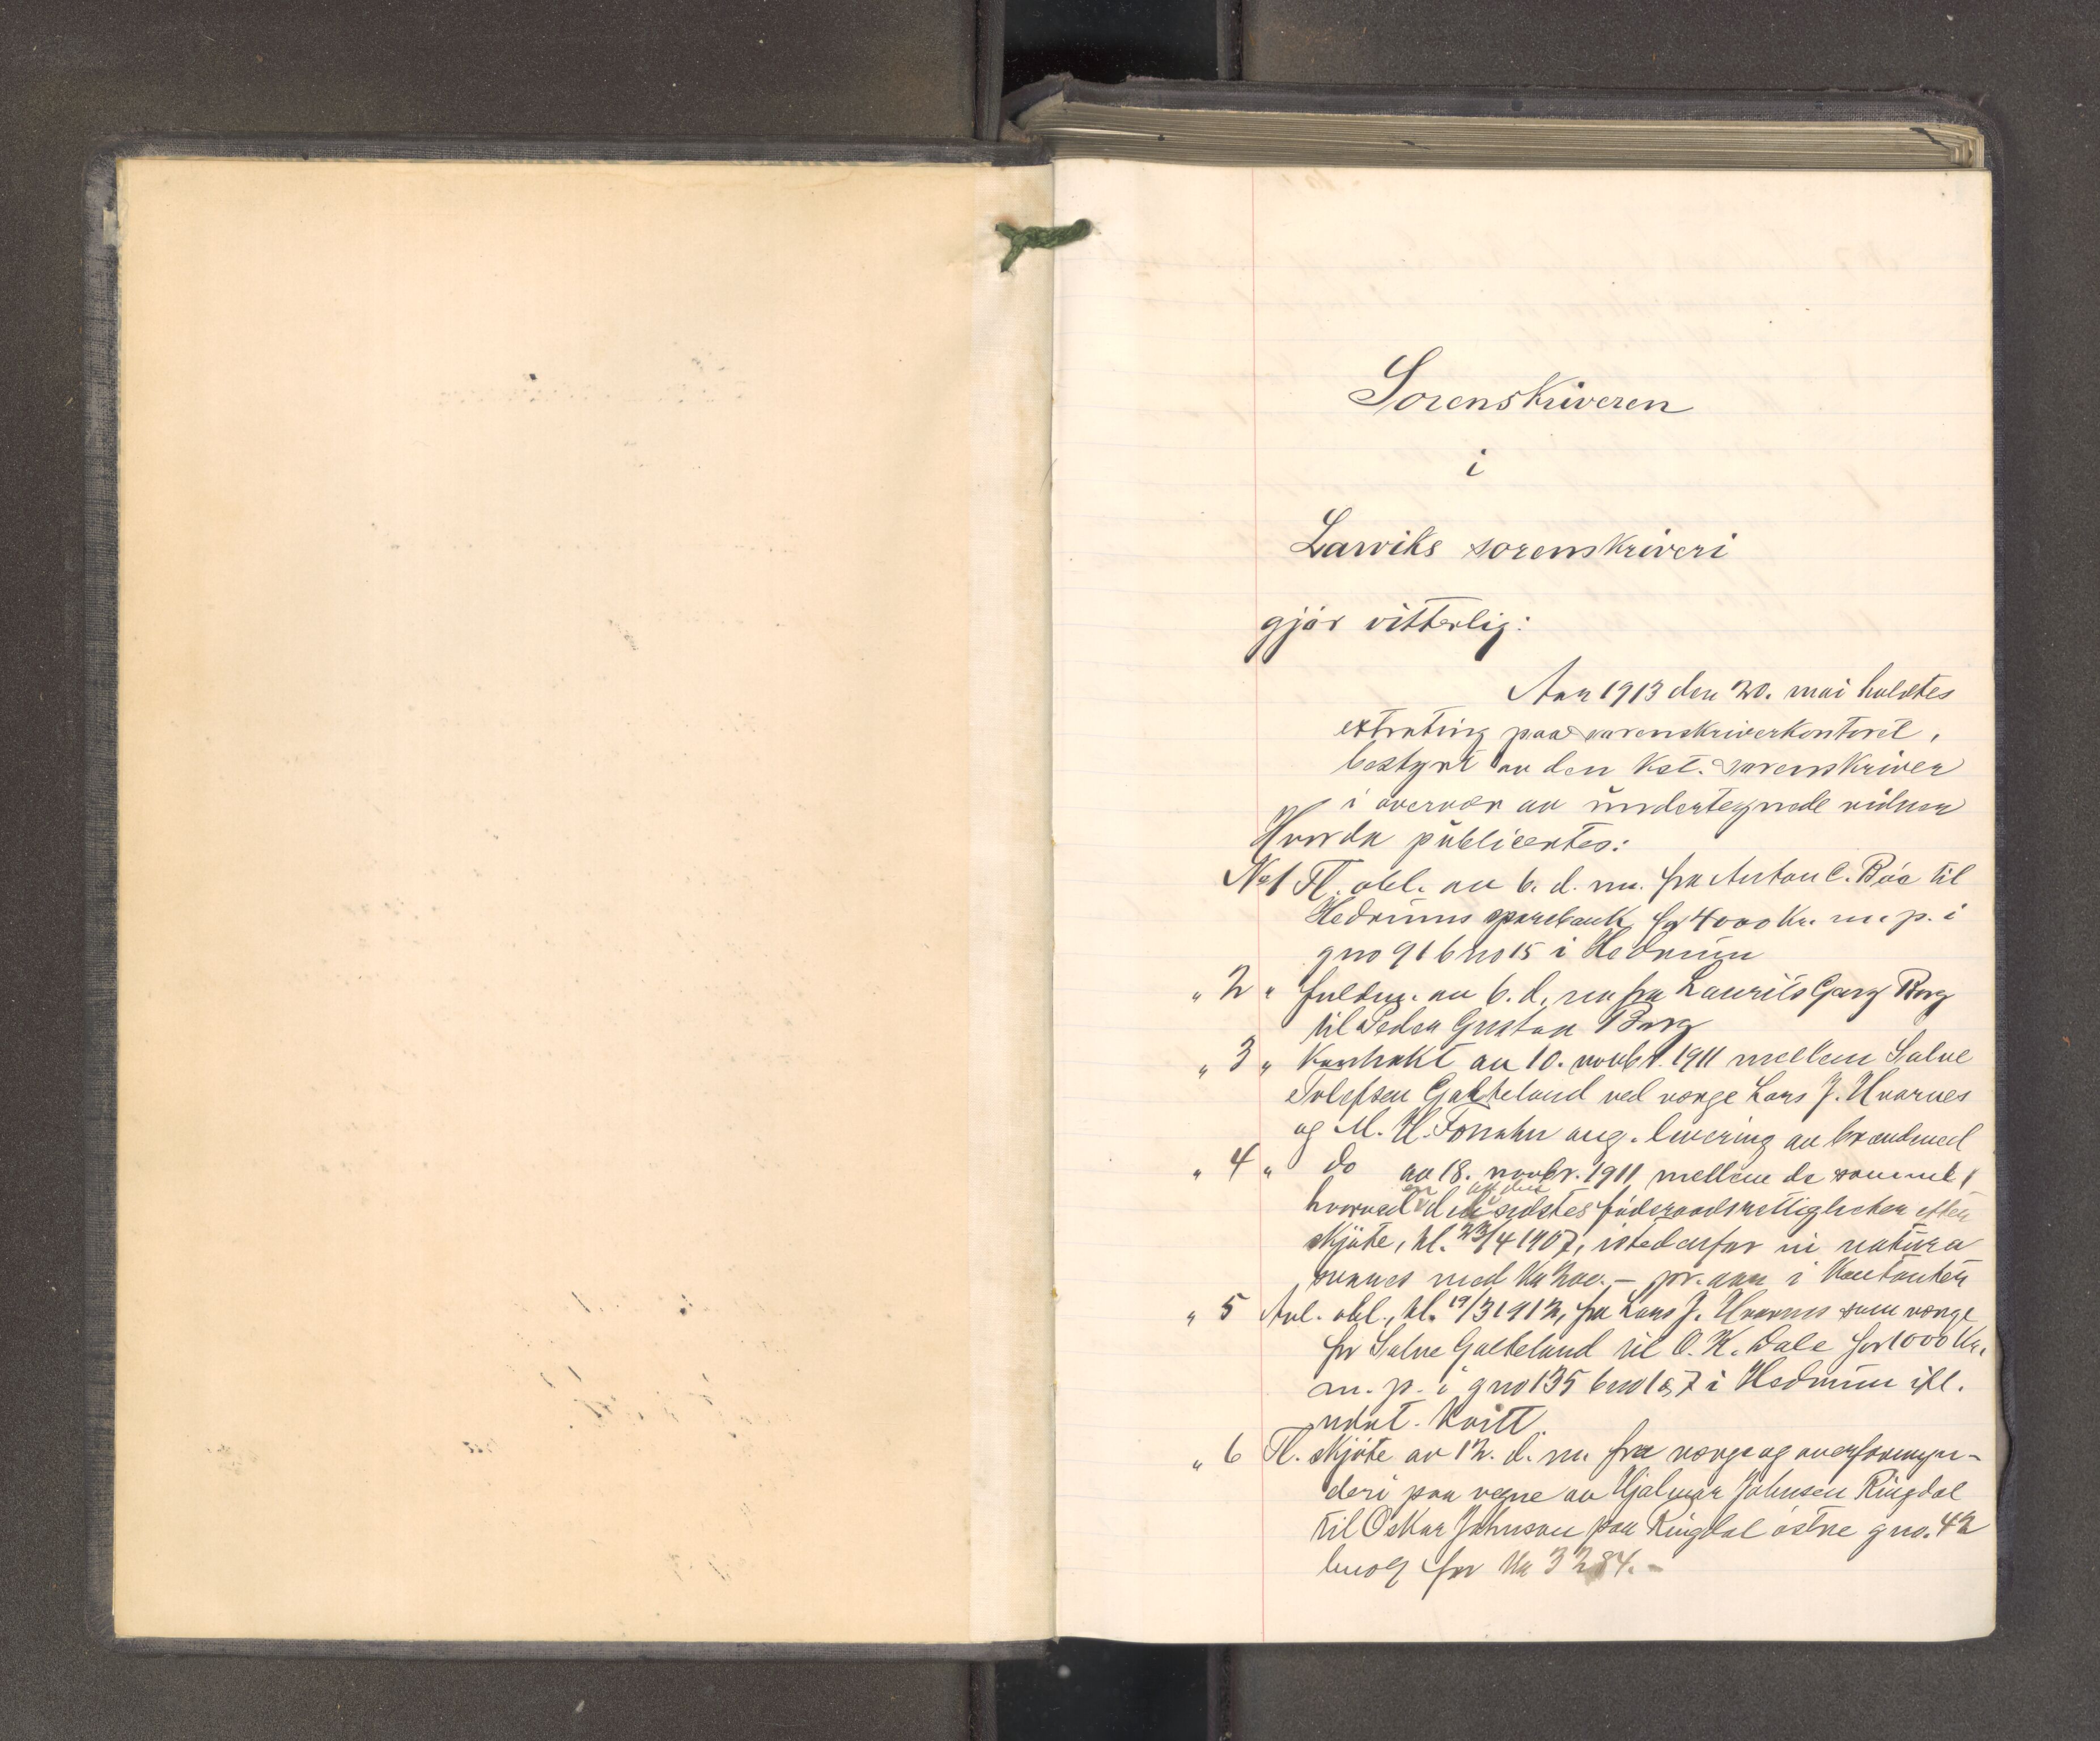 Sorenskriveren
i
Larviks sorenskriveri
gjør vitterlig:
Aar 1913 den 20. mai holdtes
extrating paa sorenskriverkontoret,
bestyrt av den kst. sorenskriver
i overvær av undertegnede vidner
Hvorda publicertes:
No 1 Tl. obl. av 6. d. m. fra Anton C. Bøe til
Hedrums sparebank for 4000 kr. m. p. i
gno 91 bno 15 i Hedrum
" 2 " fuldm. av 6. d. m fra Laurits Borg
til Peder Gustav Borg
" 3 " Kontrakt av 10. novbr. 1911 mellem Salve
Tolefsen Galteland ved verge Lars J. Kvarnes
og M. H. ang. levering av brændved
" 4 " do av 18. novbr. 1911 mellem de samme,
hvorved sidstes føderaadsrettigheter efter
skjøte, tl. 23/4 1907, istedenfor in natura
med kr. pr. aar i kontanter
" 5 Anl. obl., tl. 19/3 1912, fra Lars J. Kvarnes som verge
for Salve Galteland til O. K. Dale for 1000 kr.
m. p. i gno 135 bno 1 & 7 i Hedrum ifl.
kvitt.
" 6 Tl. skjøte av 12. d. m. fra verge og overformyn-
deri paa vegne av Hjalmar Johnsen Ringdal
til Oskar Johnsen paa Ringdal østre gno. 42
for kr 3284.-